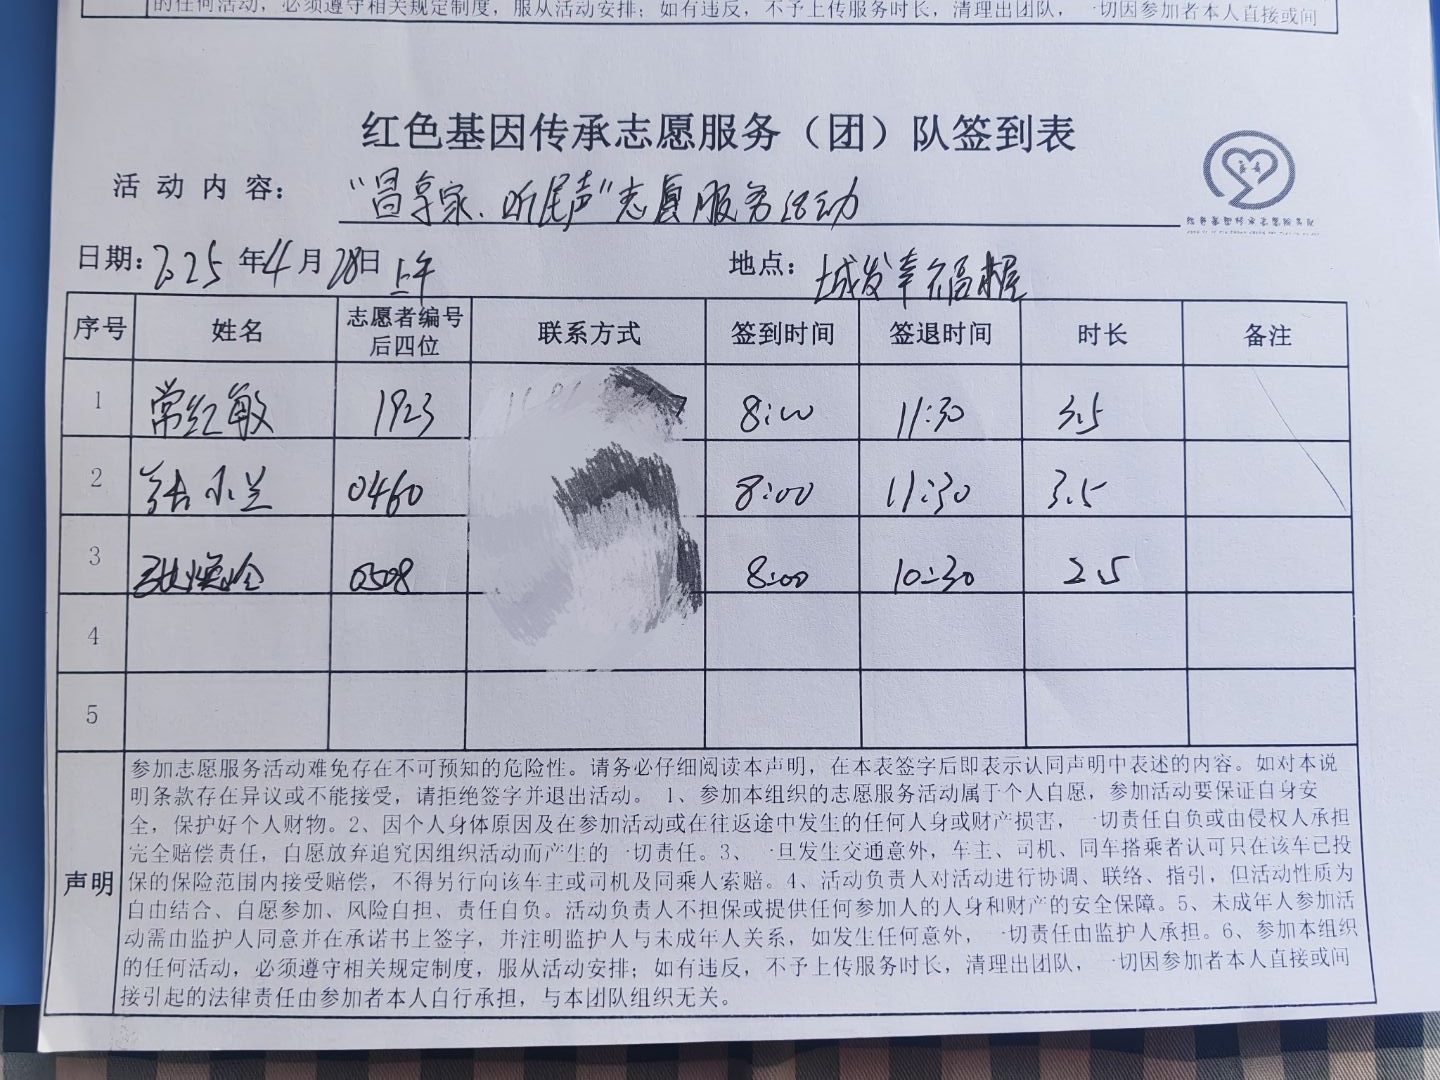 的任何活动，必须遵守相关规定制度，服从活动安排；如有违反，不予上传服务时长，清理出团队，一切因参加者本人直接或间
红色基因传承志愿服务（团）队签到表
活动内容：“昌享家、听民声”志愿服务活动
日期：2025年4月28日上午 地点：城发幸福
序号 姓名 志愿者编号后四位 联系方式 签到时间 签退时间 时长 备注
1 常红敏 1923 8:00 11:30 3.5
2 张小兰 0460 8:00 11:30 3.5
3 0508 8:00 10:30 2.5
4
5
声明
参加志愿服务活动难免存在不可预知的危险性。请务必仔细阅读本声明，在本表签字后即表示认同声明中表述的内容。如对本说
明条款存在异议或不能接受，请拒绝签字并退出活动。 1、参加本组织的志愿服务活动属于个人自愿，参加活动要保证自身安
全，保护好个人财物。2、因个人身体原因及在参加活动或在往返途中发生的任何人身或财产损害，一切责任自负或由侵权人承担
完全赔偿责任，自愿放弃追究因组织活动而产生的一切责任。3、一旦发生交通意外，车主、司机、同车搭乘者认可只在该车已投
保的保险范围内接受赔偿，不得另行向该车主或司机及同乘人索赔。4、活动负责人对活动进行协调、联络、指引，但活动性质为
自由结合、自愿参加、风险自担、责任自负。活动负责人不担保或提供任何参加人的人身和财产的安全保障。5、未成年人参加活
动需由监护人同意并在承诺书上签字，并注明监护人与未成年人关系，如发生任何意外，一切责任由监护人承担。6、参加本组织
的任何活动，必须遵守相关规定制度，服从活动安排；如有违反，不予上传服务时长，清理出团队，一切因参加者本人直接或间
接引起的法律责任由参加者本人自行承担，与本团队组织无关。